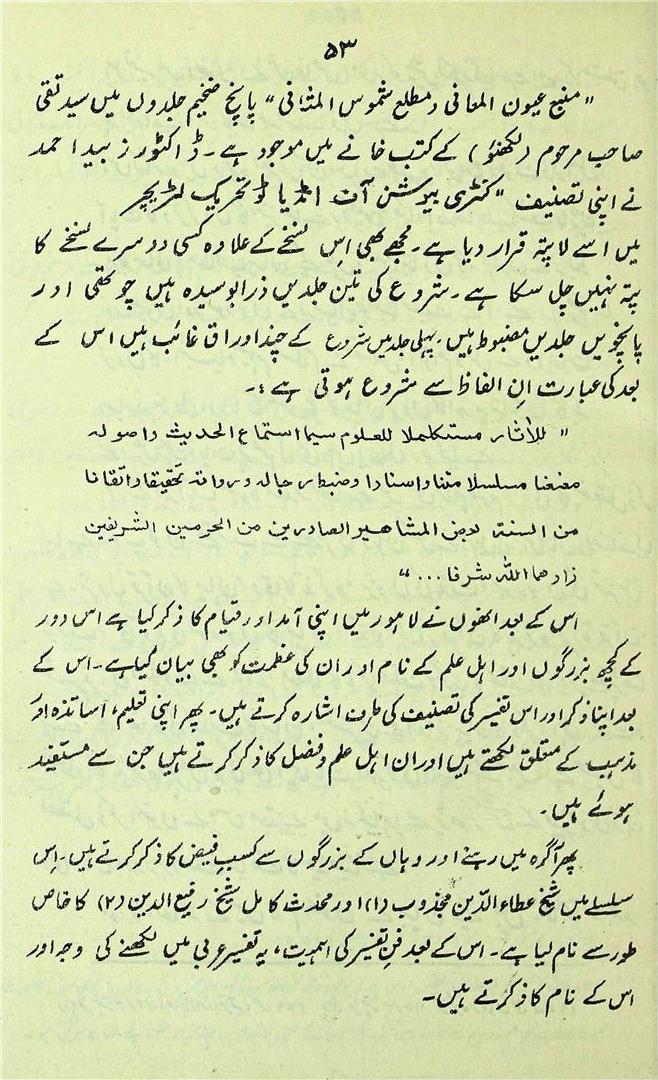 ۵۳
" منبع عیون المعانی و مطلع شموس المثانی " پانچ ضخیم جلدوں میں سید تقی
صاحب مرحوم (لکھنؤ) کے کتب خانے میں موجود ہے۔ ڈاکٹور زبید احمد
نے اپنی تصنیف " کنٹری بیوشن آف انڈیا ٹو تحریک لٹریچر
میں اسے لاپتہ قرار دیا ہے۔ مجھے بھی اس نسخے کے علاوہ کسی دوسرے نسخے کا
پتہ نہیں چل سکا ہے۔ شروع کی تین جلدیں ذرا بوسیدہ ہیں چوتھی اور
پانچویں جلدیں مضبوط ہیں۔ پہلی جلد میں شروع کے چند اوراق غائب ہیں اس کے
بعد کی عبارت اِن الفاظ سے شروع ہوتی ہے :۔
" للآثار مستکملا للعلوم سیما استماع الحدیث واصولہ
معنعنا مسلسلا متنا واسنادا وضبط رجالہ ورواتہ تحقیقا واتقانا
من السنة لبعض المشاھیر الصادرین من الحرمین الشریفین
زادھما اللہ شرفا ... "
اس کے بعد انھوں نے لاہور میں اپنی آمد اور قیام کا ذکر کیا ہے اس دور
کے کچھ بزرگوں اور اہل علم کے نام اور ان کی عظمت کو بھی بیان کیا ہے۔ اس کے
بعد اپنا ذکر اور اس تفسیر کی تصنیف کی طرف اشارہ کرتے ہیں۔ پھر اپنی تعلیم، اساتذہ اور
مذہب کے متعلق لکھتے ہیں اور ان اہل علم و فضل کا ذکر کرتے ہیں جن سے مستفید
ہوئے ہیں۔
پھر آگرہ میں رہنے اور وہاں کے بزرگوں سے کسبِ فیض کا ذکر کرتے ہیں۔ اِس
سلسلے میں شیخ عطاء الدّین مجذوب (۱) اور محدث کامل شیخ رفیع الدین (۲) کا خاص
طور سے نام لیا ہے۔ اس کے بعد فنِ تفسیر کی اہمیت، یہ تفسیر عربی میں لکھنے کی وجہ اور
اس کے نام کا ذکر کرتے ہیں۔